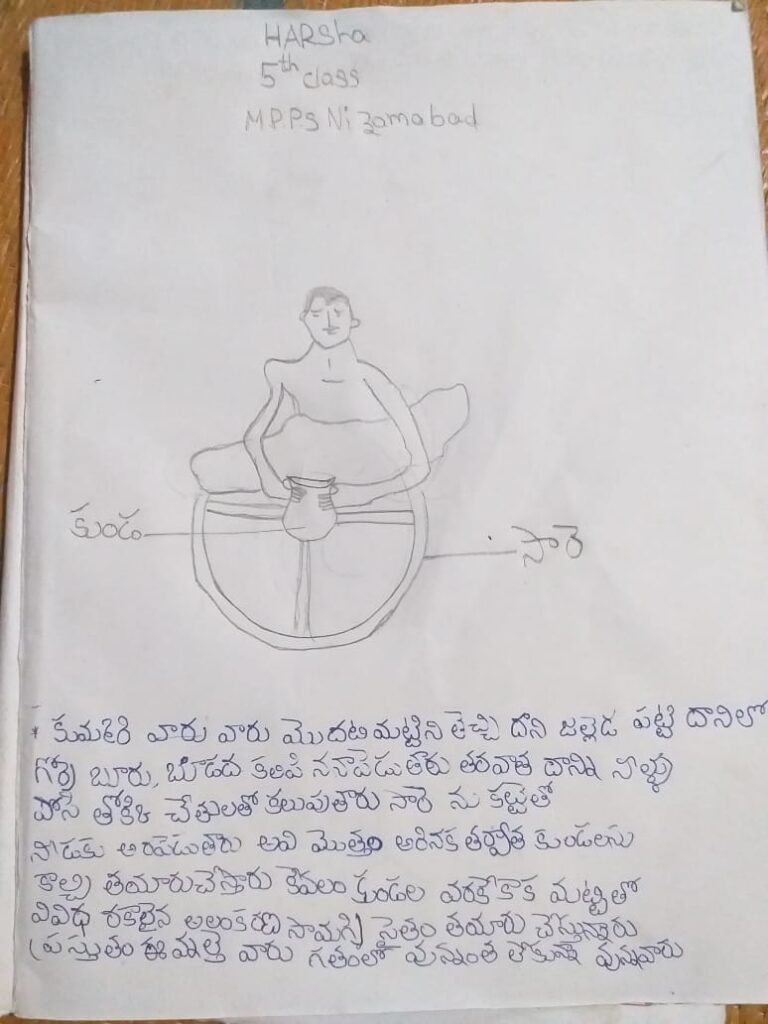 HARSha
5th class
M.P.P.S Nizamabad
కుండ
సారె
* కుమ్మరి వారు వారు మొదటి మట్టిని తెచ్చి దాని జల్లెడ పట్టి దానిలో
గొర్రె బూరు, బూడిద కలిపి ననాపెడుతారు తరవాత దాన్ని నీళ్ళు
పోసి తొక్కి చేతులతో కలుపుతారు సారె ను కట్టెతో
నీడకు ఆరపెడుతారు అవి మొత్తం అరినక తర్వాత కుండలను
కాల్చి తయారుచేస్తారు కేవలం కుండల వరకేకాక మట్టితో
వివిధ రకాలైన అలంకరణ సామగ్రి సైతం తయారు చేస్తున్నారు
ప్రస్తుతం ఈ వృత్తి వారు గతంలో వున్నంత లేకున్నా వున్నవారు